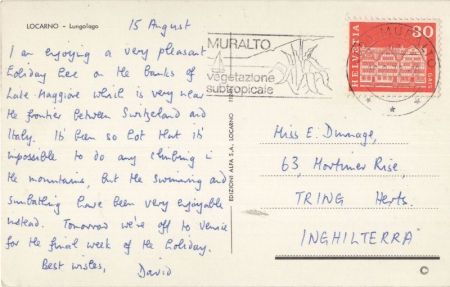 LOCARNO - Lungolago
15 August
I am enjoying a very pleasant
holiday here on the banks of
Lake Maggiore which is very near
the frontier between Switzerland and
Italy. It's been so hot that it's
impossible to do any climbing in
the mountains, but the swimming and
sunbathing have been very enjoyable
instead. Tomorrow we're off to Venice
for the final week of the holiday.
Best wishes,
David
EDIZIONI ALFA S.A. LOCARNO
MURALTO
vegetazione
subtropicale
MURALTO
HELVETIA
30
Miss E. Dunnage,
63, Mortimer Rise,
TRING Herts.
INGHILTERRA
©